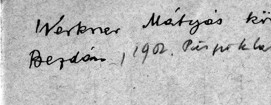 Werkner Mátyás kö
Bezdán, 1902. Püspökla